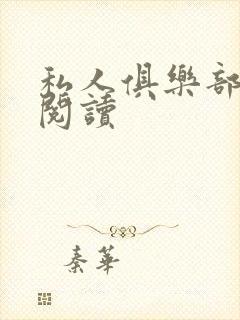 私人俱樂部
閱讀
秦華